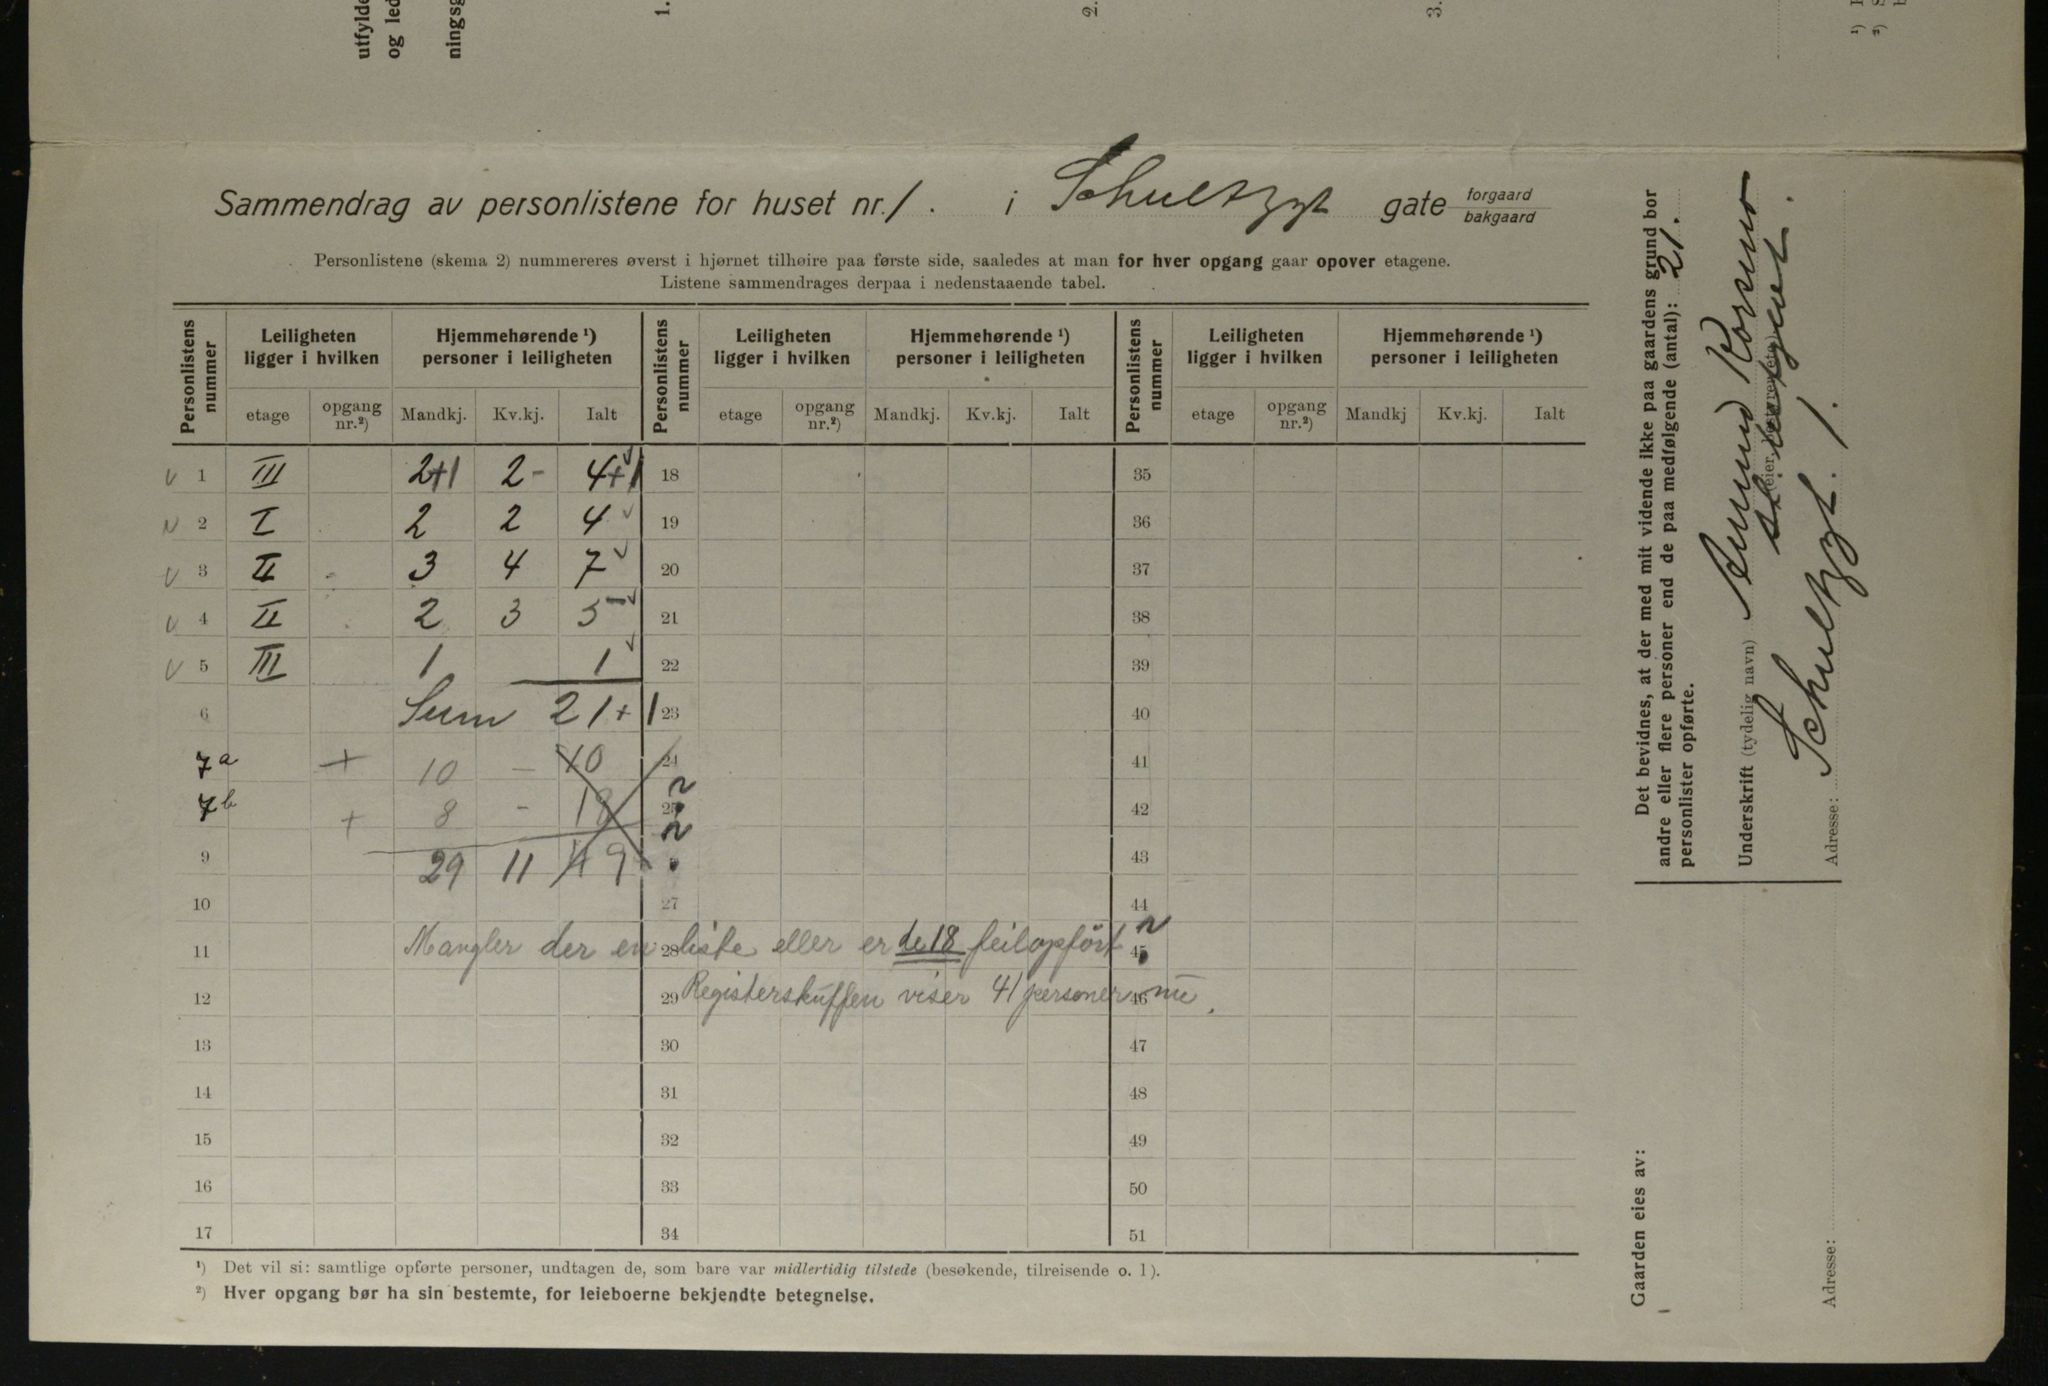 utfylde
og led
ningsg
1.
2.
3.
1)
2)
Sammendrag av personlistene for huset nr. 1. i Schultzgt gate forgaard bakgaard
Personlistene (skema 2) nummereres øverst i hjørnet tilhøire paa første side, saaledes at man for hver opgang gaar opover etagene.
Listene sammendrages derpaa i nedenstaaende tabel.
Personlistens nummer | Leiligheten ligger i hvilken | Hjemmehørende ¹) personer i leiligheten | Personlistens nummer | Leiligheten ligger i hvilken | Hjemmehørende ¹) personer i leiligheten | Personlistens nummer | Leiligheten ligger i hvilken | Hjemmehørende ¹) personer i leiligheten
etage | opgang nr.²) | Mandkj. | Kv.kj. | Ialt | etage | opgang nr.²) | Mandkj. | Kv.kj. | Ialt | etage | opgang nr.²) | Mandkj | Kv.kj. | Ialt
1 III 2+1 2- 4+1 18 35
2 I 2 2 4 19 36
3 II 3 4 7 20 37
4 II 2 3 5 21 38
5 III 1 1 22 39
6 Sum 21+1 23 40
7a + 10 - 10 24 41
7b + 8 - 18 25 42
9 29 11 49 43
10 27 44
11 Mangler der en 28 liste eller er de 18 feilopført 45
12 29 Registerskuffen viser 41 personer 46 nu.
13 30 47
14 31 48
15 32 49
16 33 50
17 34 51
¹) Det vil si: samtlige opførte personer, undtagen de, som bare var midlertidig tilstede (besøkende, tilreisende o. l).
²) Hver opgang bør ha sin bestemte, for leieboerne bekjendte betegnelse.
Det bevidnes, at der med mit vidende ikke paa gaardens grund bor
andre eller flere personer end de paa medfølgende (antal): 21.
personlister opførte.
Underskrift (tydelig navn)
Adresse: Schultzgt. 1.
Gaarden eies av:
Adresse: